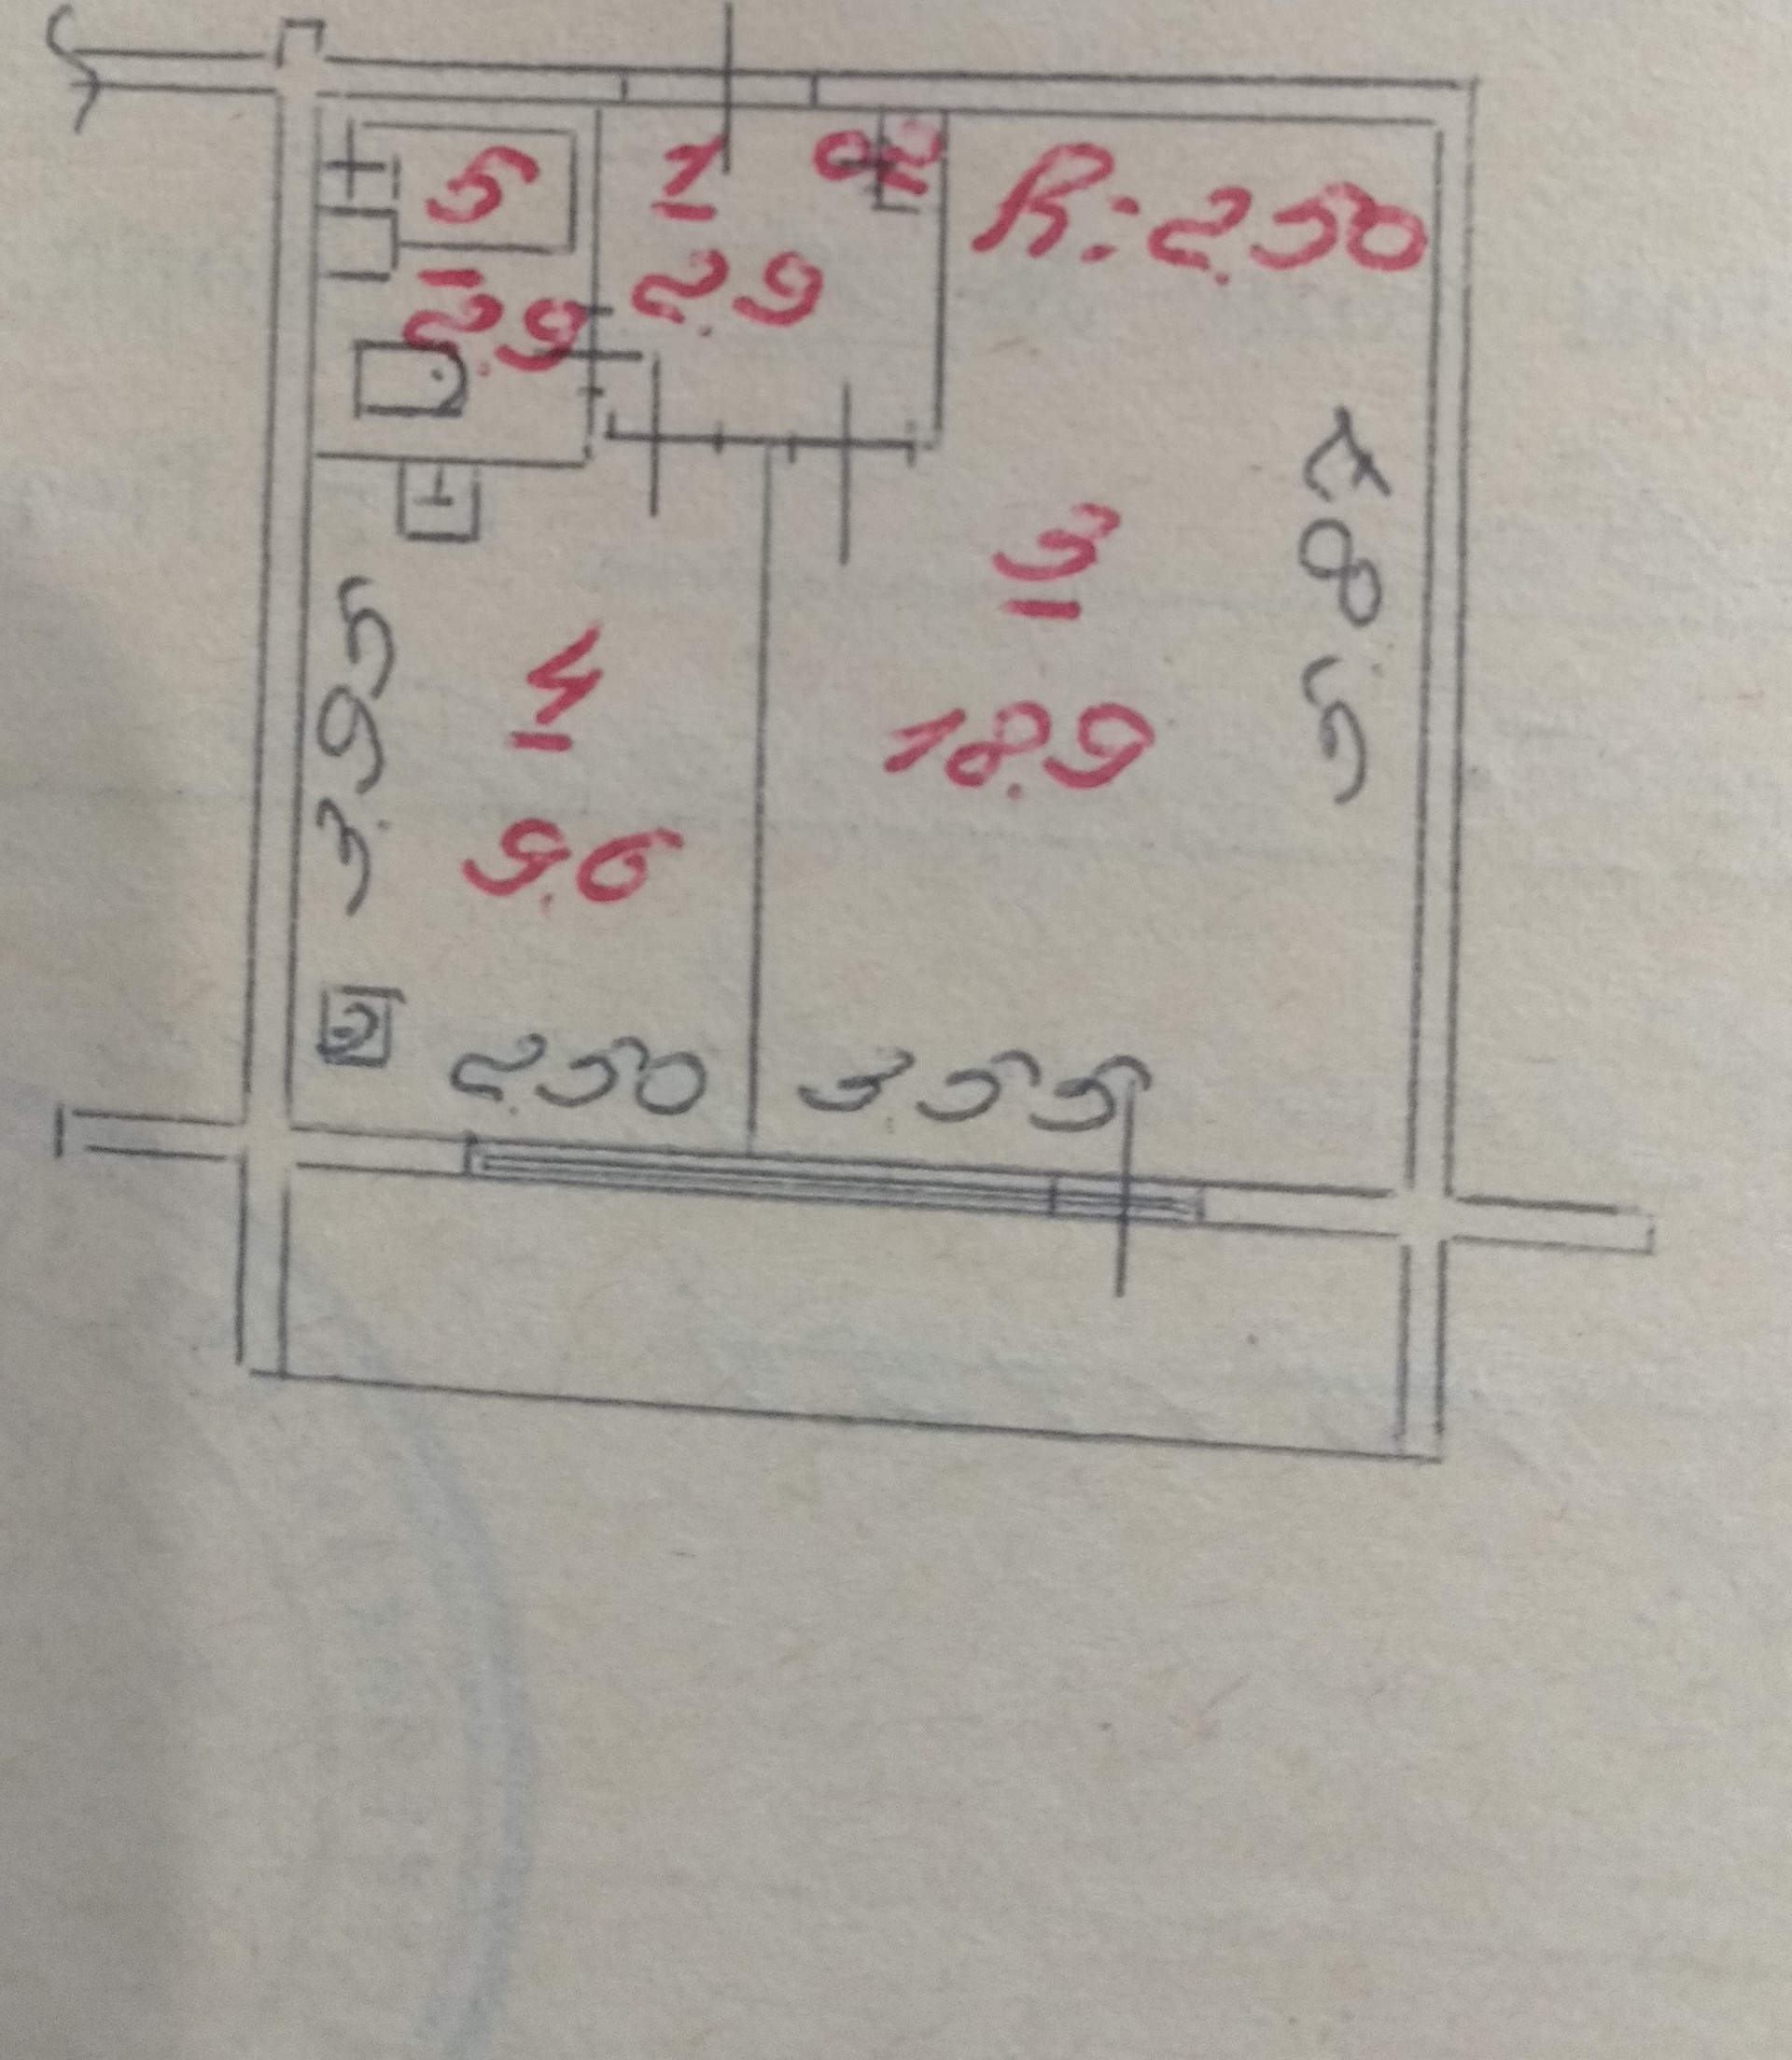 5
2.9
1
2.9
02
h: 2.50
5.87
3
18.9
3.95
4
9.6
2.50
3.55